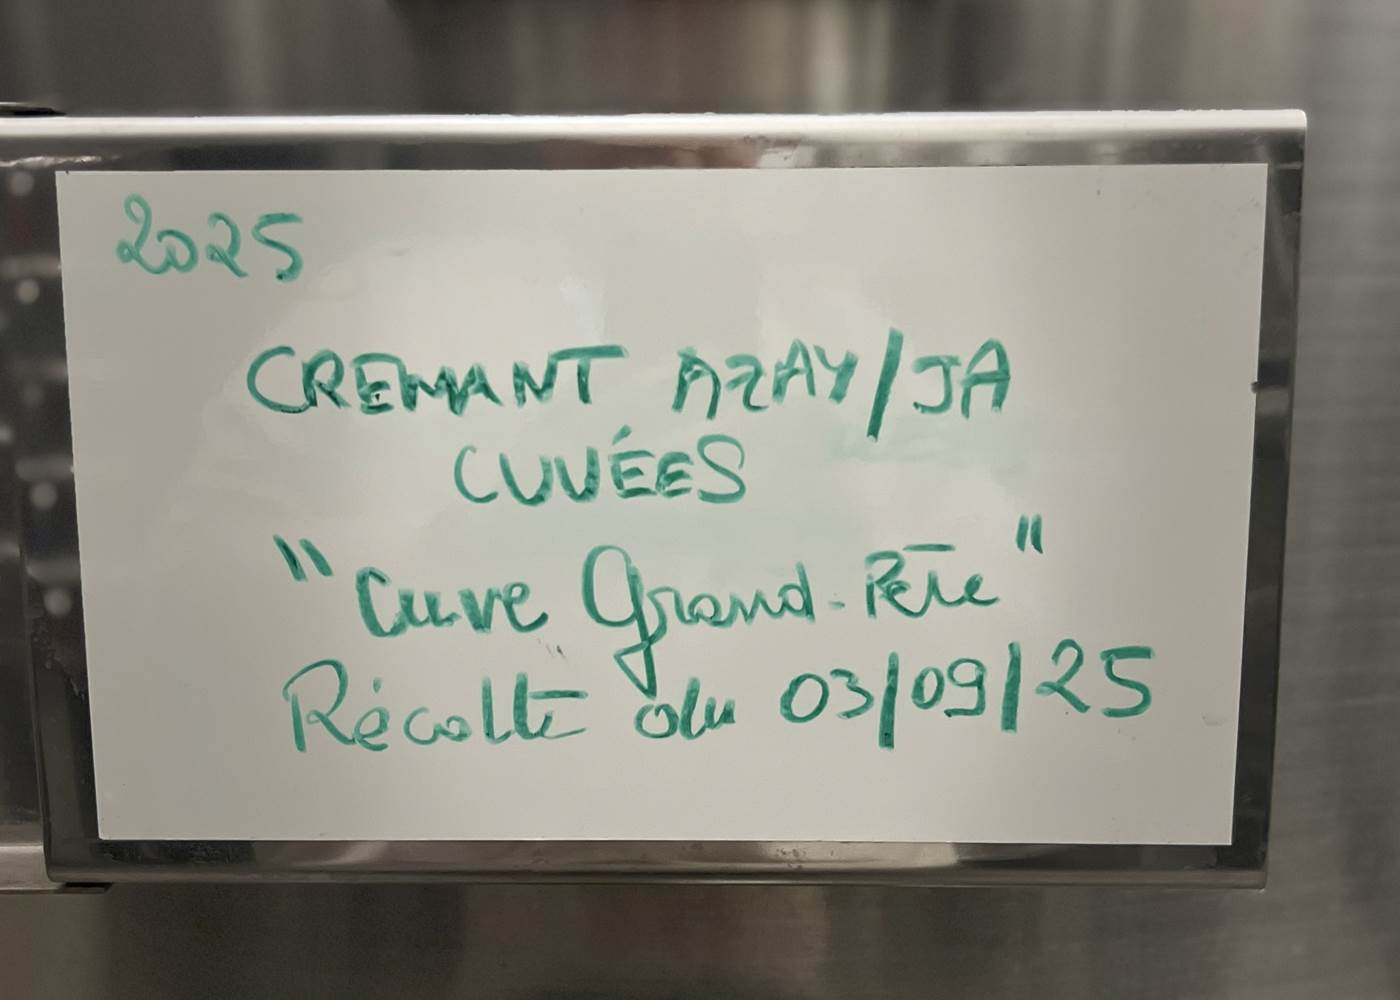 2025
CREMANT AZAY/JA
CUVÉES
"Cuve Grand-Père"
Récolte du 03/09/25